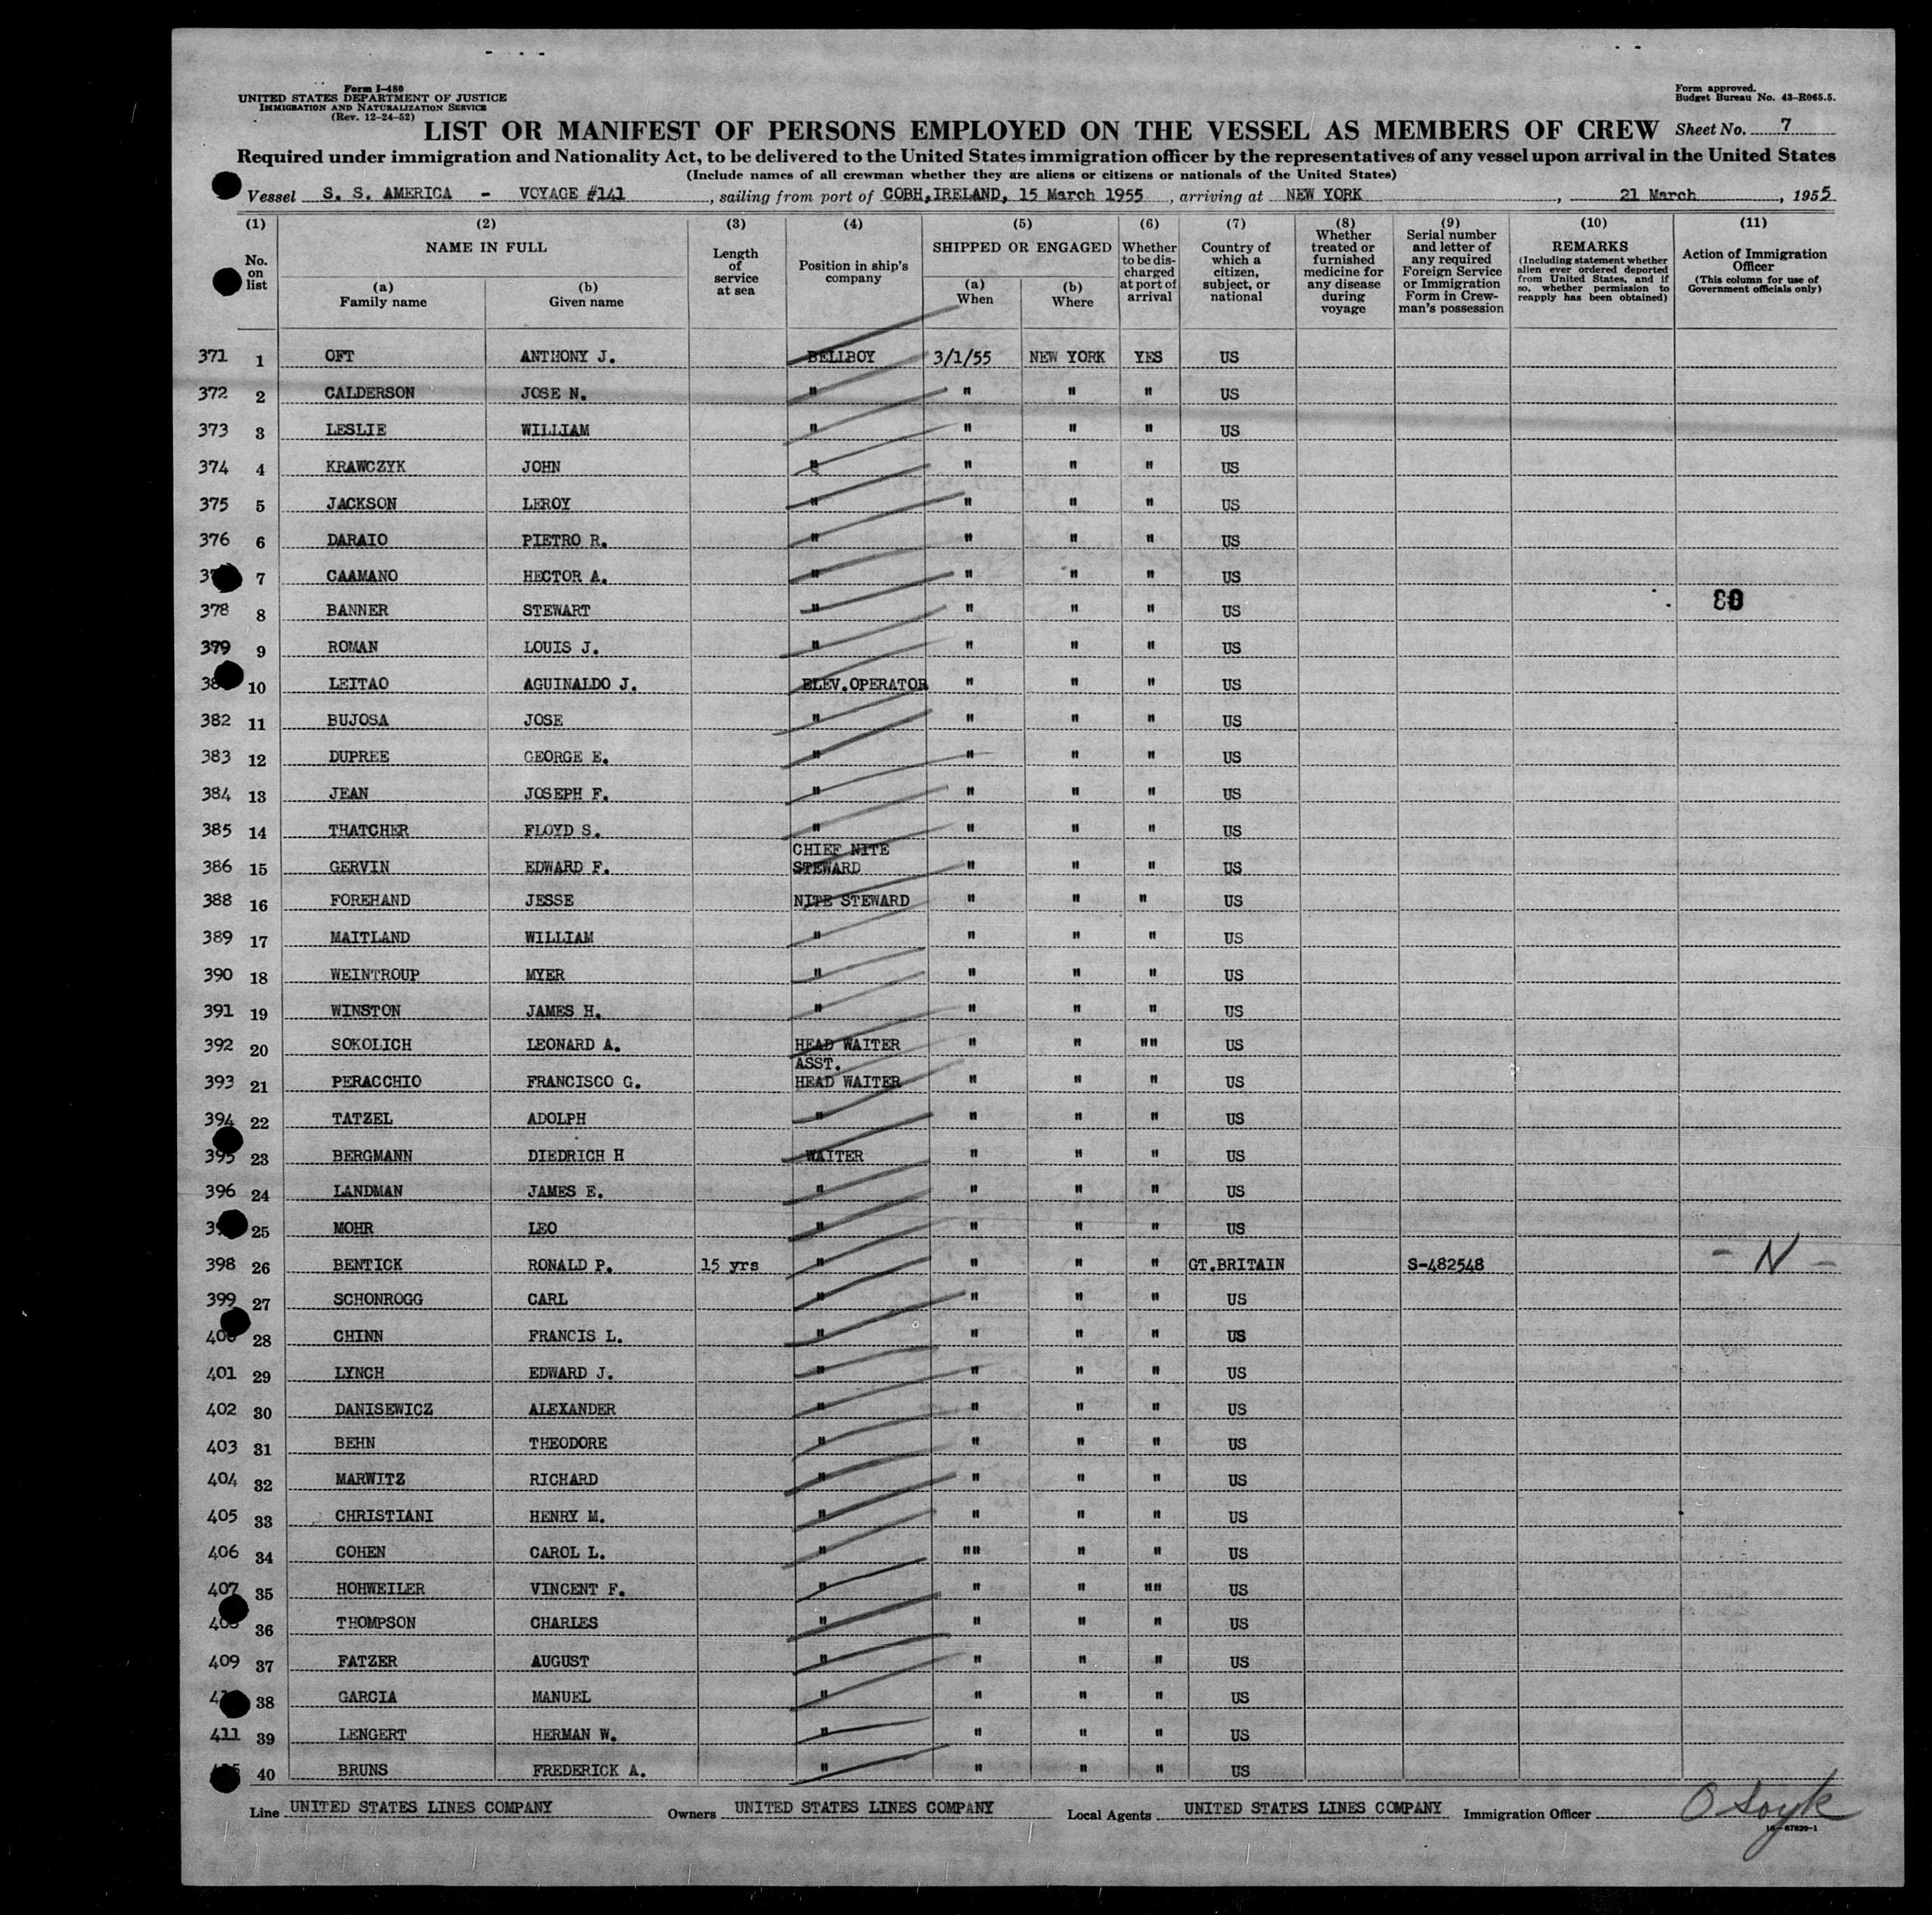 Form I-480
UNITED STATES DEPARTMENT OF JUSTICE
IMMIGRATION AND NATURALIZATION SERVICE
(Rev. 12-24-52)
Form approved.
Budget Bureau No. 43-R065.5.
LIST OR MANIFEST OF PERSONS EMPLOYED ON THE VESSEL AS MEMBERS OF CREW Sheet No. 7
Required under immigration and Nationality Act, to be delivered to the United States immigration officer by the representatives of any vessel upon arrival in the United States
(Include names of all crewman whether they are aliens or citizens or nationals of the United States)
Vessel S. S. AMERICA - VOYAGE #141, sailing from port of COBH, IRELAND, 15 March 1955, arriving at NEW YORK, 21 March, 1955
(1) No. on list
(2) NAME IN FULL
(a) Family name
(b) Given name
(3) Length of service at sea
(4) Position in ship's company
(5) SHIPPED OR ENGAGED
(a) When
(b) Where
(6) Whether to be discharged at port of arrival
(7) Country of which a citizen, subject, or national
(8) Whether treated or furnished medicine for any disease during voyage
(9) Serial number and letter of any required Foreign Service or Immigration Form in Crewman's possession
(10) REMARKS (Including statement whether alien ever ordered deported from United States, and if so, whether permission to reapply has been obtained)
(11) Action of Immigration Officer (This column for use of Government officials only)
371 1 OFT ANTHONY J. BELLBOY 3/1/55 NEW YORK YES US
372 2 CALDERSON JOSE N. " " " " US
373 3 LESLIE WILLIAM " " " " US
374 4 KRAWCZYK JOHN " " " " US
375 5 JACKSON LEROY " " " " US
376 6 DARAIO PIETRO R. " " " " US
7 CAAMANO HECTOR A. " " " " US
378 8 BANNER STEWART " " " " US 80
379 9 ROMAN LOUIS J. " " " " US
10 LEITAO AGUINALDO J. ELEV.OPERATOR " " " US
382 11 BUJOSA JOSE " " " " US
383 12 DUPREE GEORGE E. " " " " US
384 13 JEAN JOSEPH F. " " " " US
385 14 THATCHER FLOYD S. " " " " US
386 15 GERVIN EDWARD F. CHIEF NITE STEWARD " " " US
388 16 FOREHAND JESSE NITE STEWARD " " " US
389 17 MAITLAND WILLIAM " " " " US
390 18 WEINTROUP MYER " " " " US
391 19 WINSTON JAMES H. " " " " US
392 20 SOKOLICH LEONARD A. HEAD WAITER " " "" US
393 21 PERACCHIO FRANCISCO G. ASST. HEAD WAITER " " " US
394 22 TATZEL ADOLPH " " " " US
395 23 BERGMANN DIEDRICH H WAITER " " " US
396 24 LANDMAN JAMES E. " " " " US
25 MOHR LEO " " " " US
398 26 BENTICK RONALD P. 15 yrs " " " " GT.BRITAIN S-482548 - N -
399 27 SCHONROGG CARL " " " " US
400 28 CHINN FRANCIS L. " " " " US
401 29 LYNCH EDWARD J. " " " " US
402 30 DANISEWICZ ALEXANDER " " " " US
403 31 BEHN THEODORE " " " " US
404 32 MARWITZ RICHARD " " " " US
405 33 CHRISTIANI HENRY M. " " " " US
406 34 COHEN CAROL L. " "" " " US
407 35 HOHWEILER VINCENT F. " " " "" US
408 36 THOMPSON CHARLES " " " " US
409 37 FATZER AUGUST " " " " US
38 GARCIA MANUEL " " " " US
411 39 LENGERT HERMAN W. " " " " US
40 BRUNS FREDERICK A. " " " " US
Line UNITED STATES LINES COMPANY Owners UNITED STATES LINES COMPANY Local Agents UNITED STATES LINES COMPANY Immigration Officer
16-67820-1